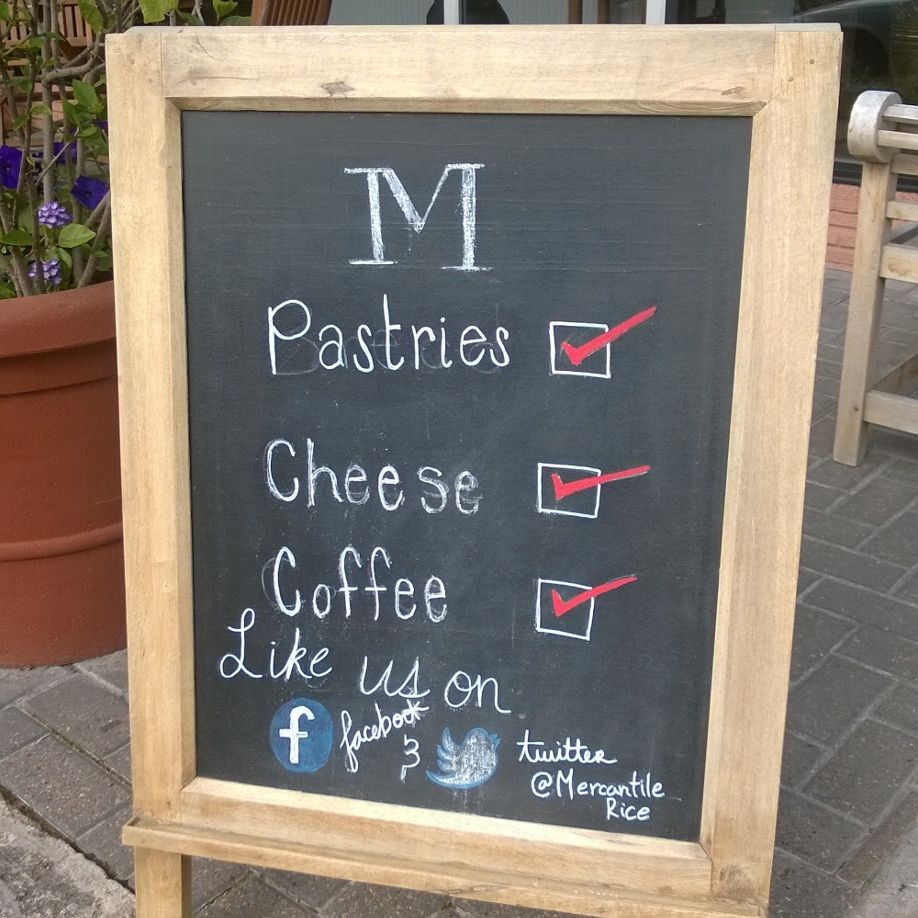 M
Pastries
Cheese
Coffee
Like us on
f facebook & twitter
@Mercantile
Rice